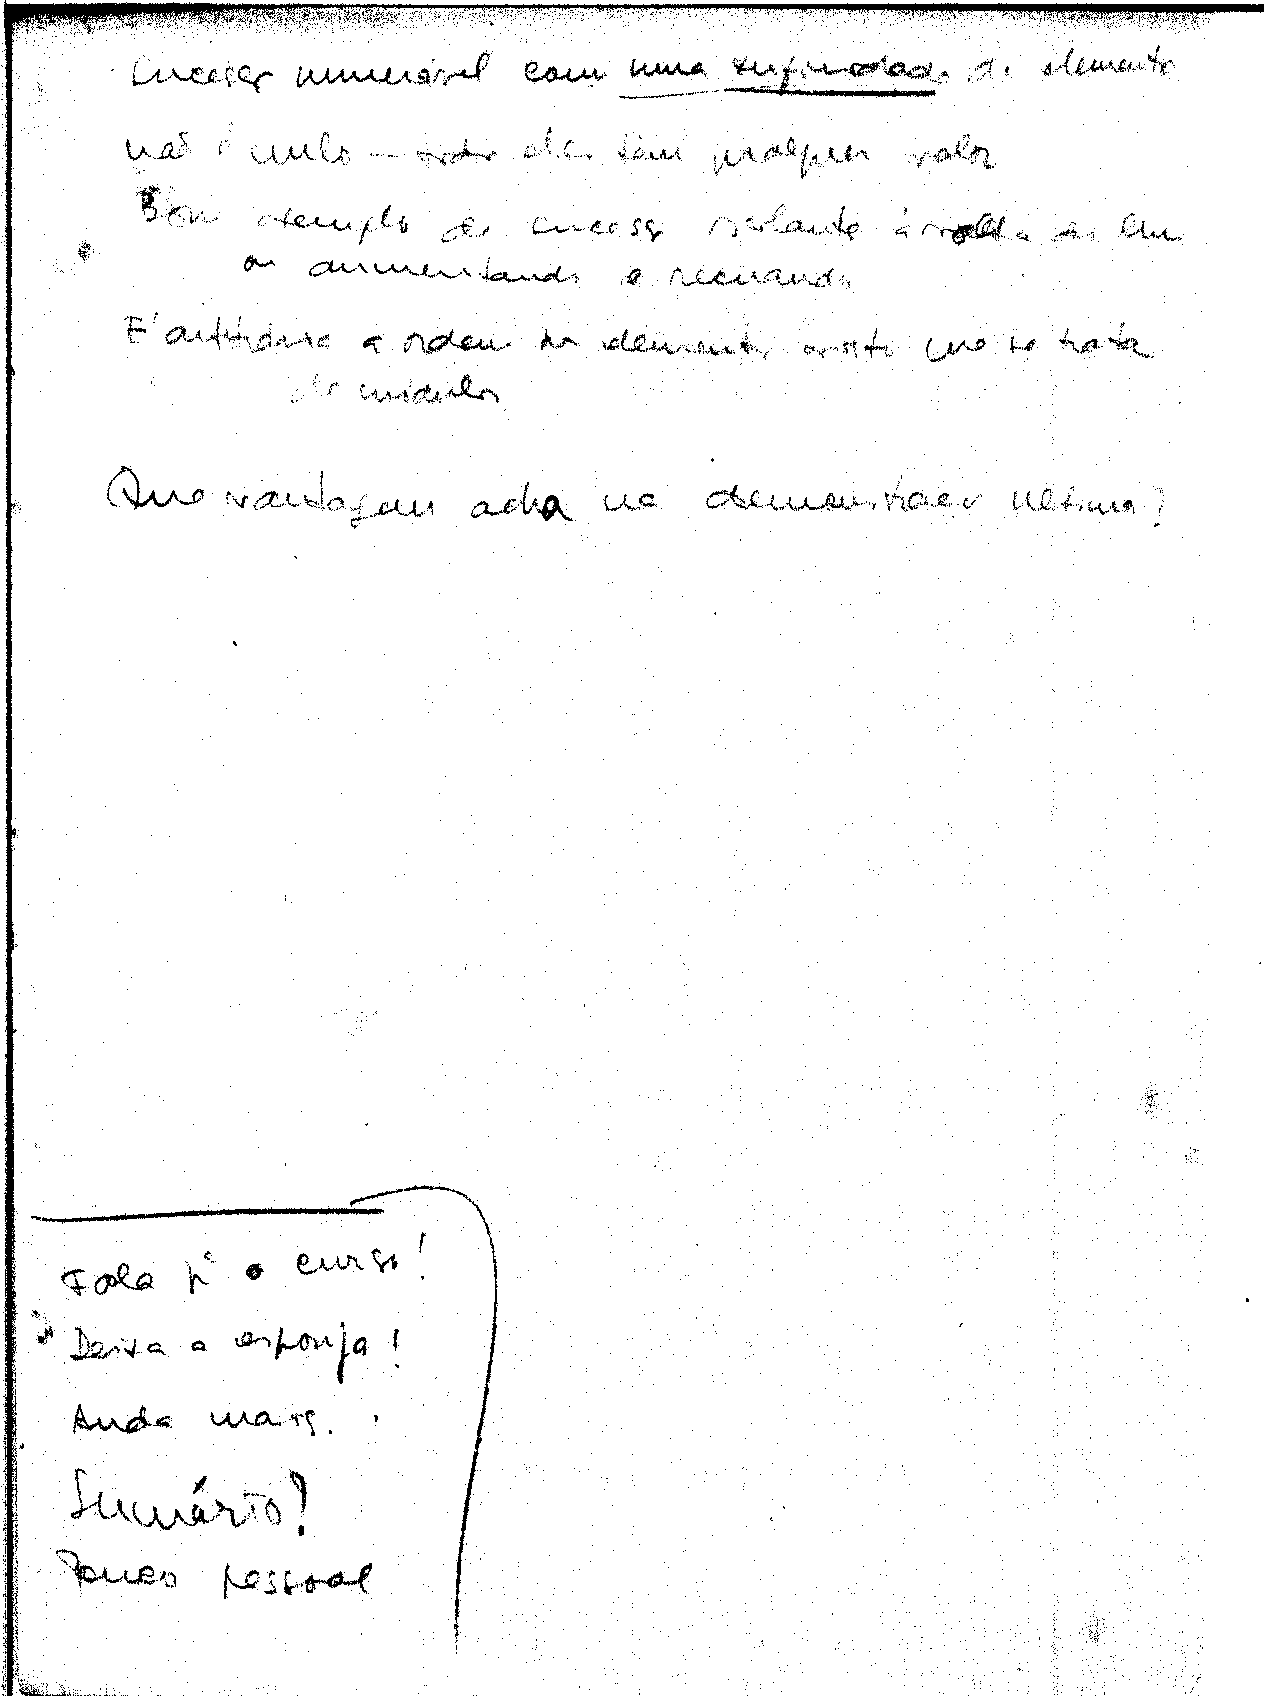 Sucessão numerável com uma infinidade de elementos
não é nulo — todos eles têm qualquer valor
Bom exemplo de sucessão oscilante à volta de um
ou aumentando e recuando
É a ordem dos elementos visto que se trata
de módulos
Que vantagem acha na demonstração última?
Fala pª o curso!
Deixa a esponja!
Anda mais.
Sumário?
Pouco pessoal